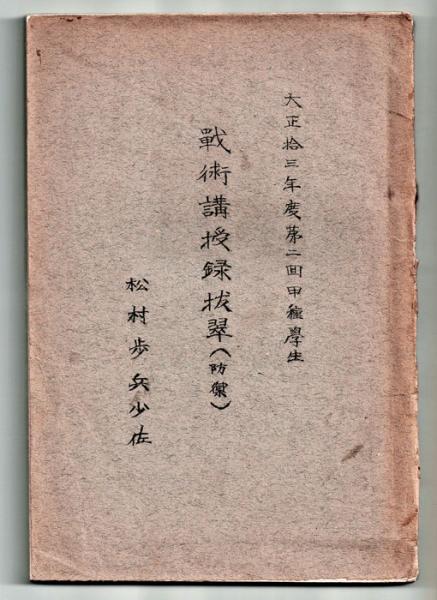 大正拾三年度第二回甲種學生
戰術講授録拔翠(防禦)
松村歩兵少佐